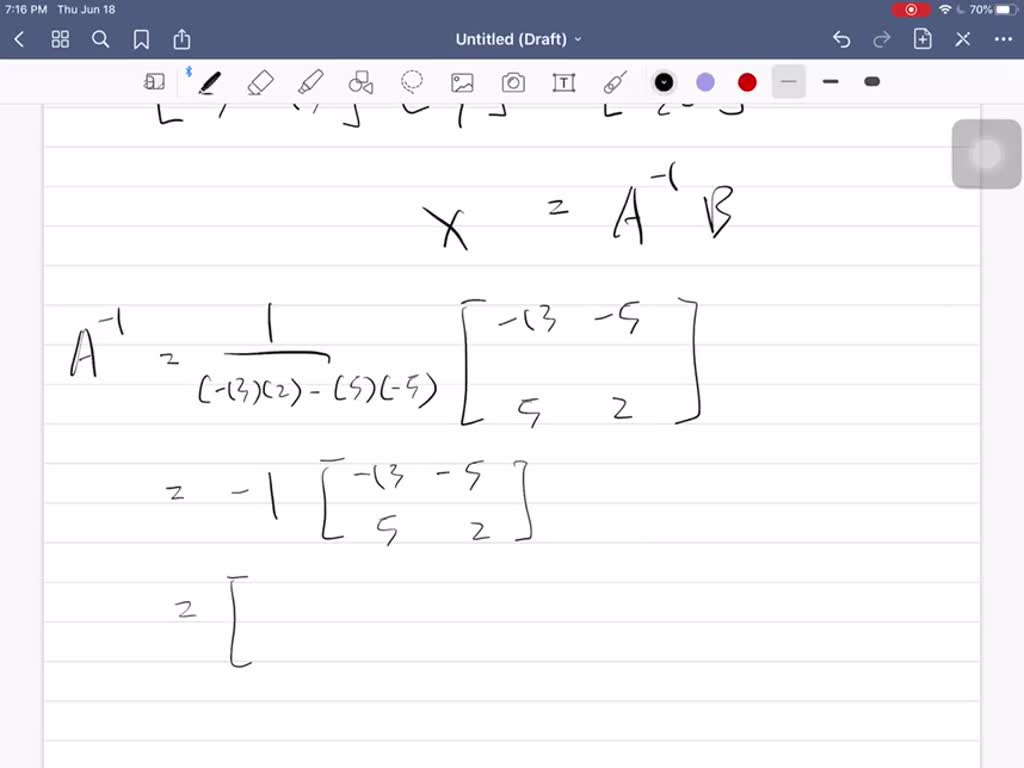 7:16 PM Thu Jun 18
70%
Untitled (Draft)
X = A⁻¹ B
A⁻¹ = 1 / (-13)(2) - (5)(-5) [ -13 -5
5 2 ]
= -1 [ -13 -5
5 2 ]
= [